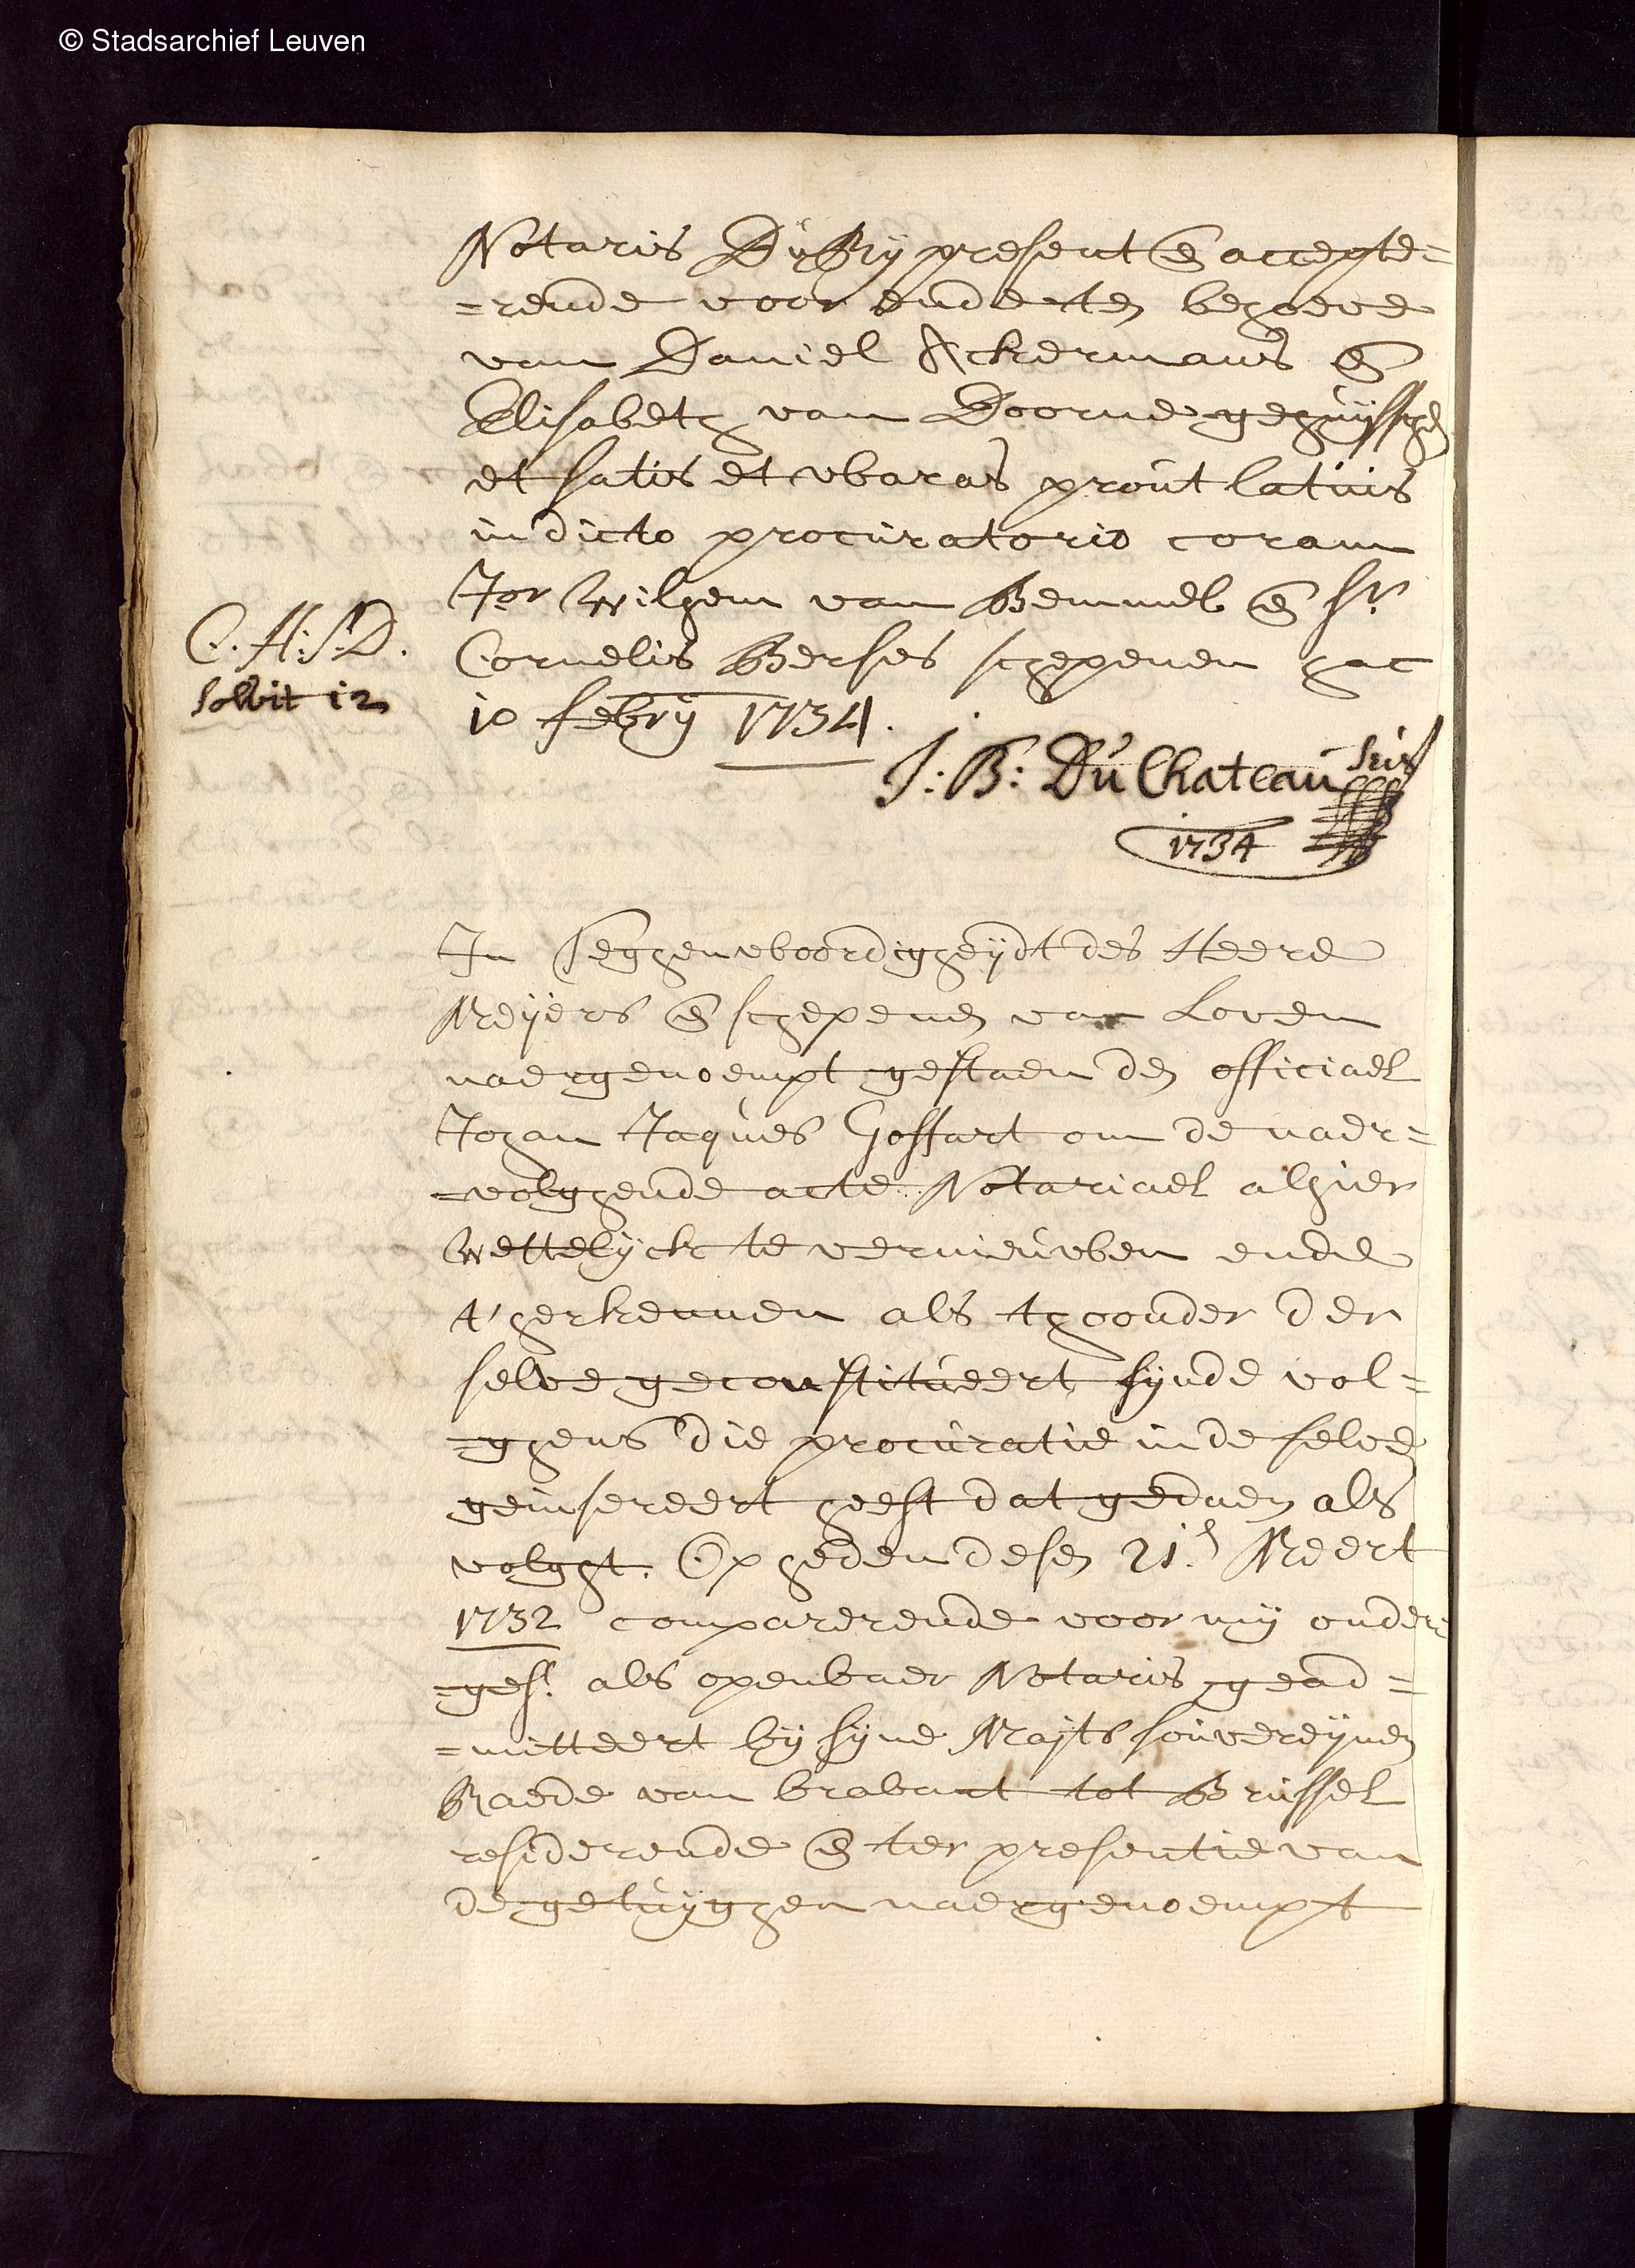 © Stadsarchief Leuven
Notaris DuBry present en accepte=
=rende voor ende ten behoeve
van Daniel Ackermans en
Elisabeth van Doorne gehuysschen
et satis et waras prout latius
in dicto procuratorio coram
Jor Wilhem van Bemmel en Sr
Cornelis Berses schepenen hac
10 febrij 1734.
C. H: S: D.
Solvit 12
J: B: Du Chateau
1734
In teghenwoordigheydt des Heere
Meyers en schepenen van Loven
naergenoempt gestaen den officiael
Johan Jaques Goffart om de naer=
=volghende acte Notariael alhier
wettelyck te vernieuwen ende
t'herkennen als thoonder der
selve geconstitueert synde vol=
=ghens die procuratie in de selve
geinsereert heeft dat gedaen als
volght. Op heden desen 21.en Meert
1732 comparerende voor my onder=
=ges. als openbaer Notaris gead=
=mitteert by syne Majts souvereynen
Raede van brabant tot Brussel
residerende en ter presentie van
de getuyghen naergenoempt